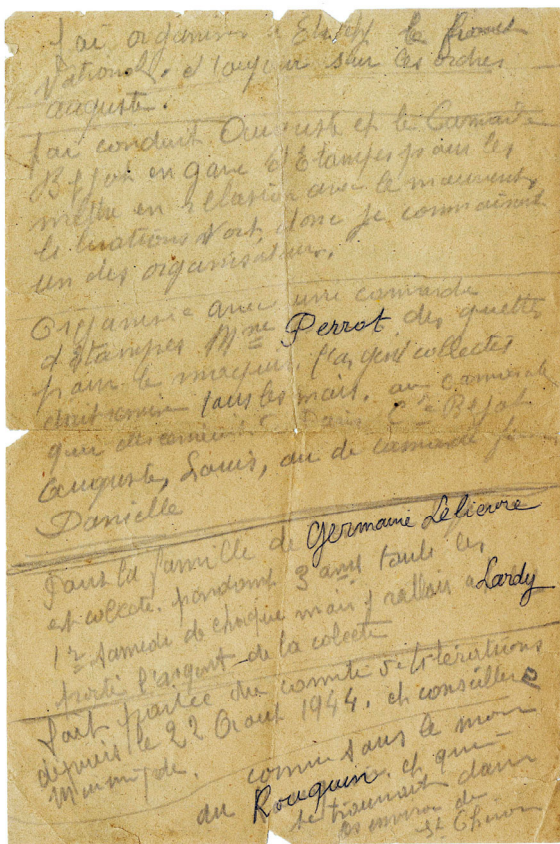 J'ai organiser a le front
National. et toujour sur les ordres
auguste.
J'ai conduit Auguste et le Camarade
Bejot en gare d'Etampes pour les
mettre en relation avec le mouvement
donc je connaissait
un des organisateur.
Organise avec une camarade
d'Etampes Mme Perrot des quettes
pour le maquis. l'argent collectes
tous les mois. au camarade
qui Paris Bejot
Auguste, Louis, ou de camarade
Danielle
Pour la famille de Germaine Lelievre
et colecte. pendant 3 ans touts les
1er Samedi de chaque mois j'allais a Lardy
porté l'argent de la colecte
Fait partie du comité de liberations
depuis le 22 Aout 1944. et conseillere
Municipale.
connu sous le nom
du Rouquin. et qui
se trouvait dans
les environ de
St Cheron